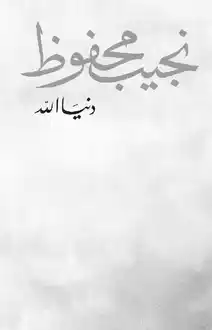 نجيب محفوظ
دنيا الله